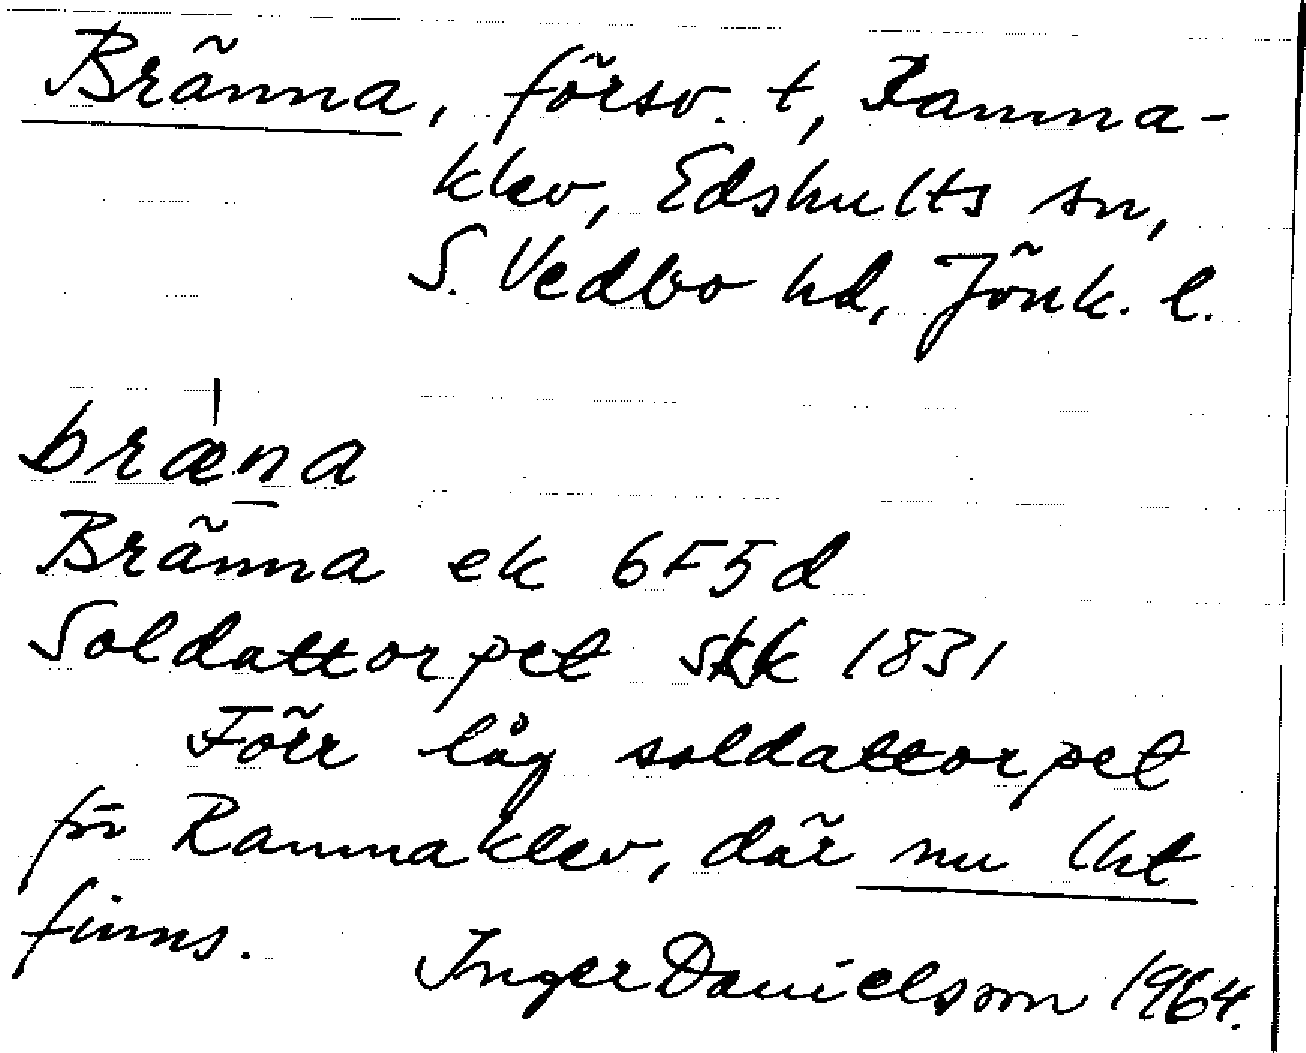 Bränna, försv. t, Ramna-
klev, Edshults sn,
S. Vedbo hd, Jönk. l.
bræ̍n̠a
Bränna ek 6F5d
Soldattorpet skk 1831
Förr låg soldattorpet
för Ramnaklev, där nu lht
finns.
Inger Danielsson 1964.